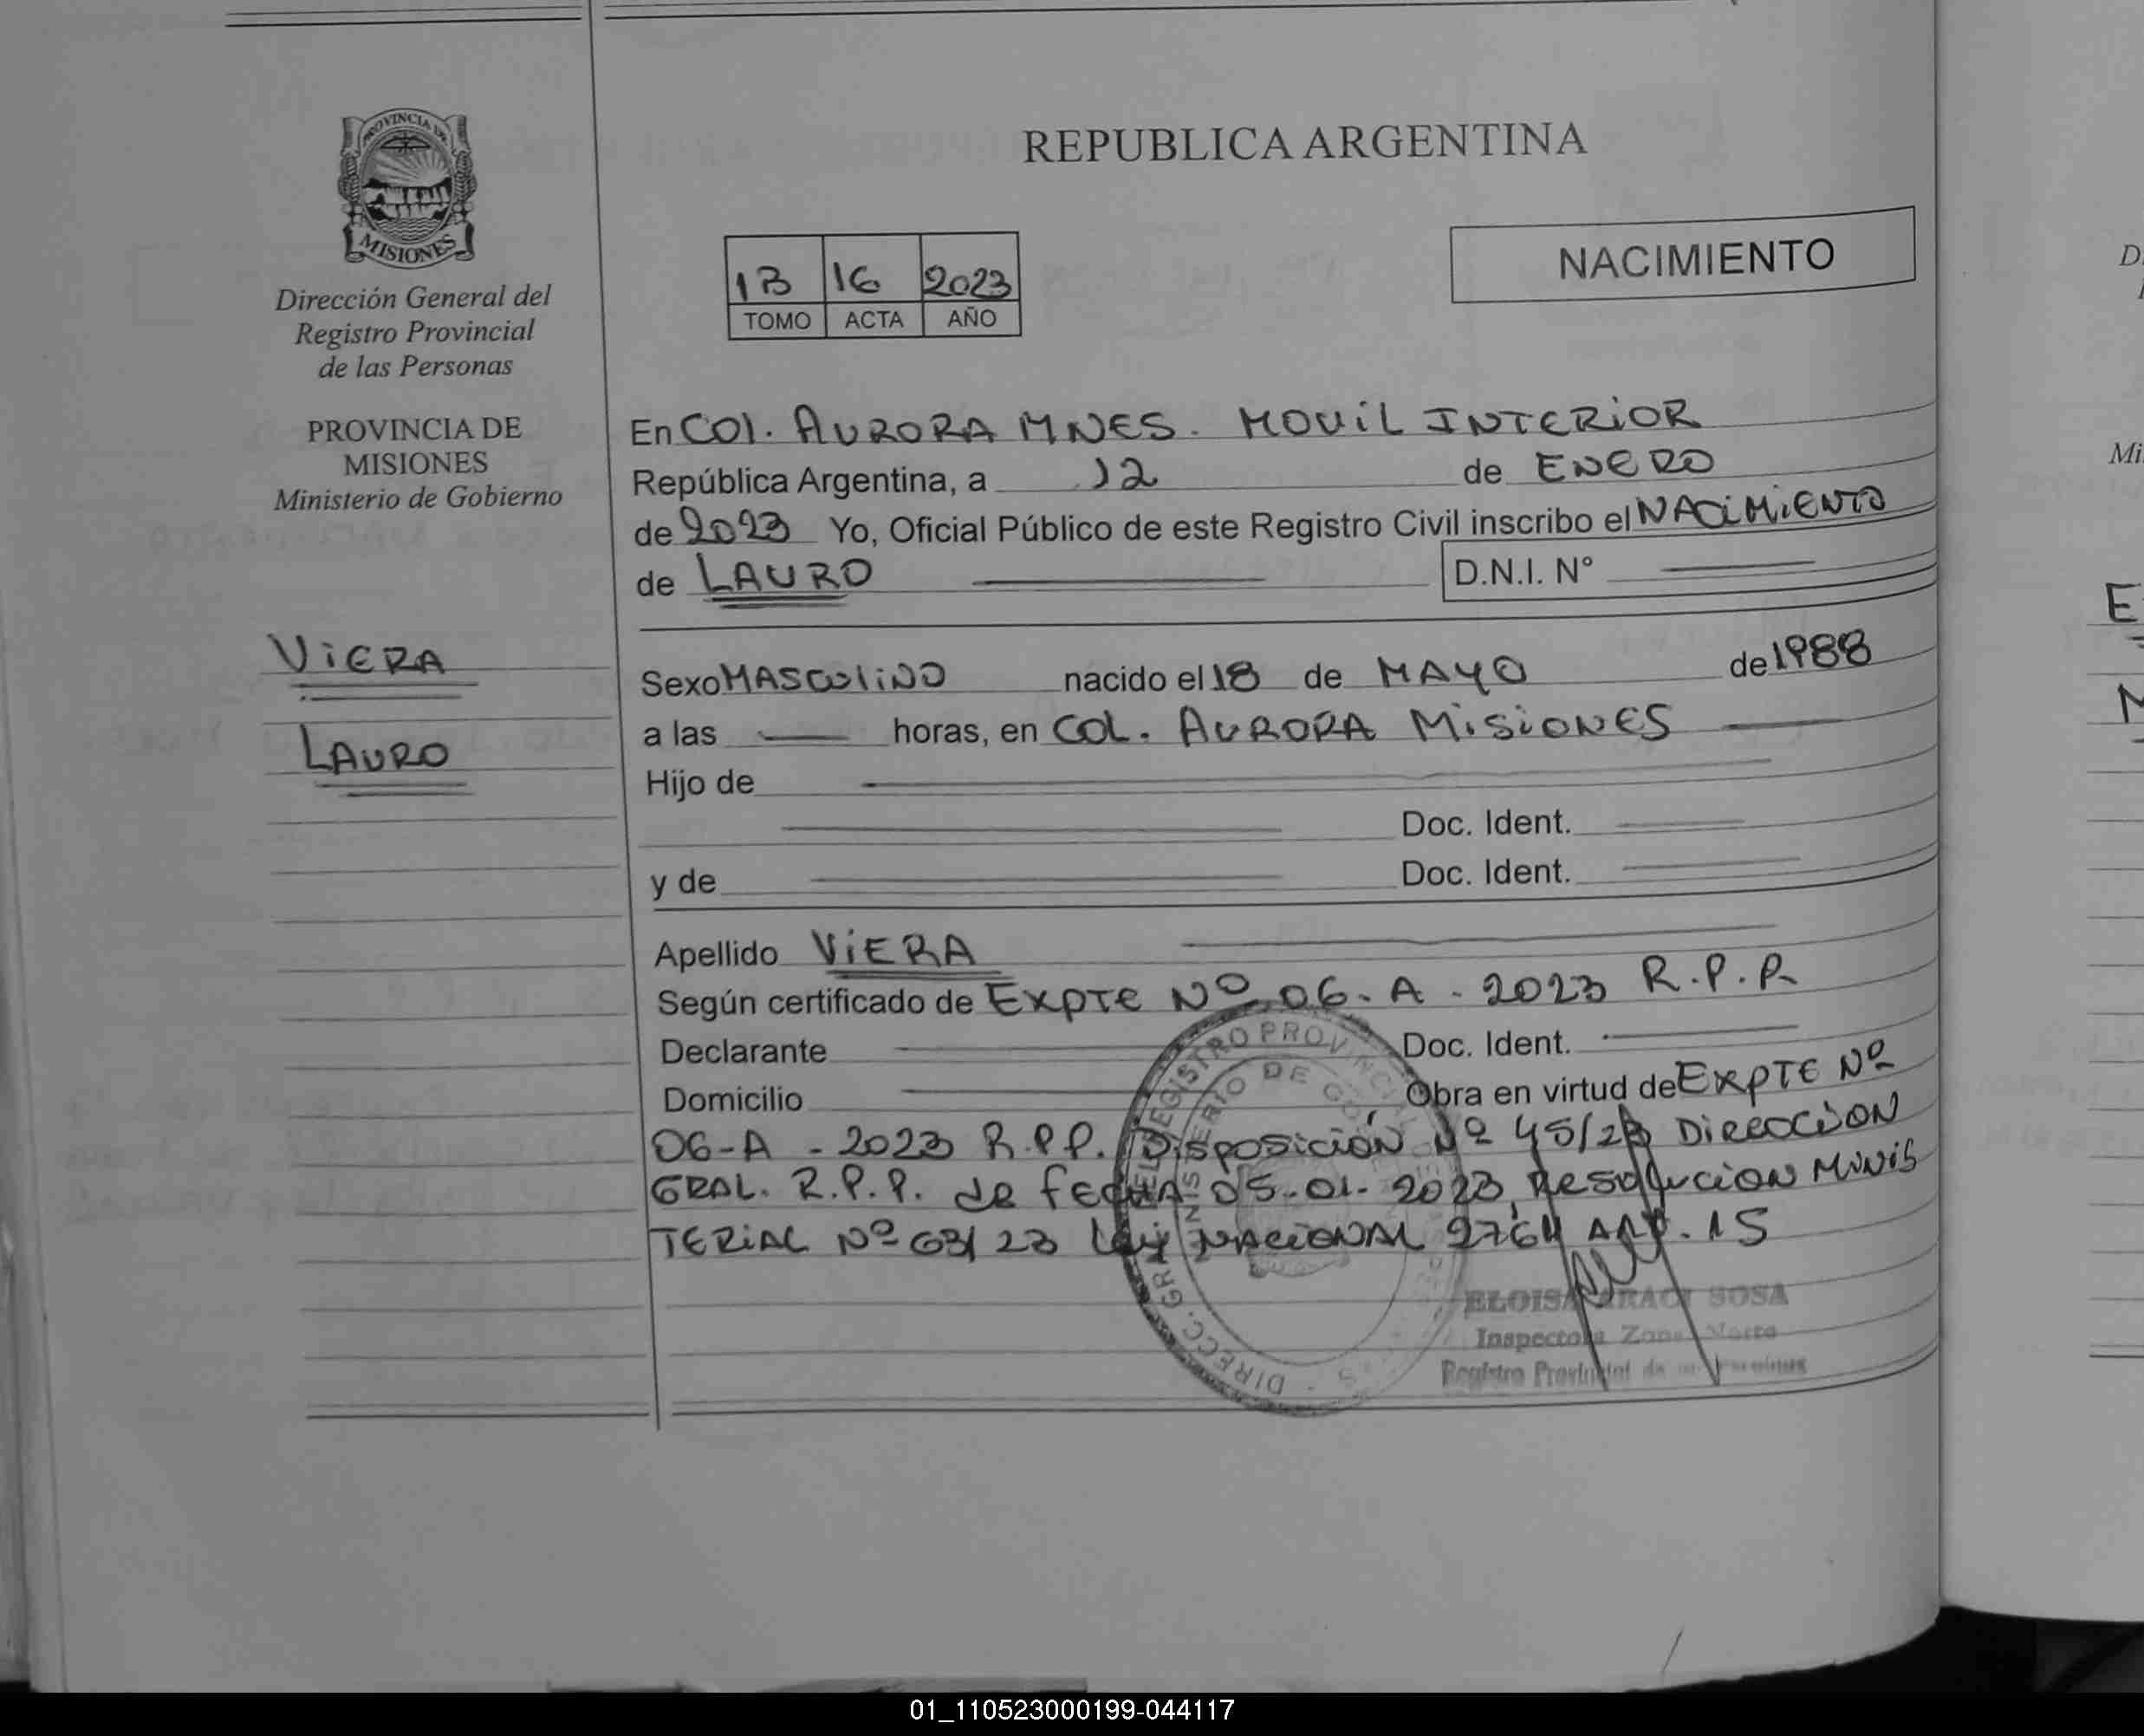 PROVINCIA DE
MISIONES
Dirección General del
Registro Provincial
de las Personas
PROVINCIA DE
MISIONES
Ministerio de Gobierno
VIERA
LAURO
REPUBLICA ARGENTINA
13 16 2023
TOMO ACTA AÑO
NACIMIENTO
En COl. AURORA MNES. MOVIL INTERIOR
República Argentina, a 12 de ENERO
de 2023 Yo, Oficial Público de este Registro Civil inscribo el NACIMIENTO
de LAURO D.N.I. N°
Sexo MASCULINO nacido el 18 de MAYO de 1988
a las horas, en COL. AURORA MISIONES
Hijo de
Doc. Ident.
y de Doc. Ident.
Apellido VIERA
Según certificado de EXPTE Nº 06-A-2023 R.P.P.
Declarante Doc. Ident.
Domicilio Obra en virtud de EXPTE Nº
06-A-2023 R.P.P. Disposición Nº 45/23 DIRECCION
GRAL. R.P.P. de FECHA 05-01-2023, Resolucion MINIS
TERIAL Nº 63/23 Ley NACIONAL ART. 15
DIRECC. GRAL DEL REGISTRO PROVINCIAL
MINISTERIO DE
ELOISA ARACI SOSA
Inspectora Zona Norte
Registro Provincial de las Personas
D
Mi
E
01_110523000199-044117